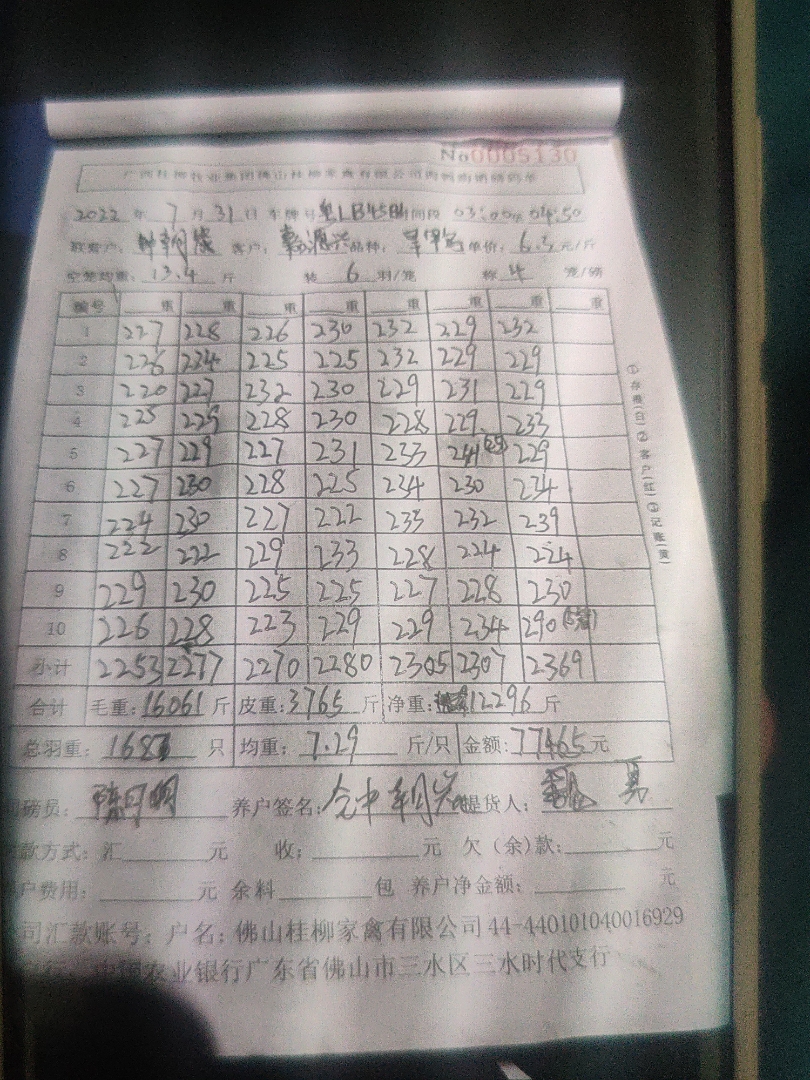 No0005130
广西桂柳牧业集团佛山桂柳家禽有限公司肉鸭购销磅码单
2022 年 7 月 31 日 车牌号 时间段 03:00至04:50
客户: 品种: 单价: 6.3 元/斤
空笼均重: 13.4 斤 装 6 羽/笼 称 4 笼/磅
编号 重 重 重 重 重 重 重 重
1 227 228 226 230 232 229 232
2 226 224 225 225 232 229 229
3 220 227 232 230 229 231 229
4 225 229 228 230 228 229 233
5 227 229 227 231 233 241 229
6 227 230 228 225 234 230 234
7 224 230 227 222 235 232 239
8 222 222 229 233 228 224 224
9 229 230 225 225 227 228 230
10 226 228 223 229 229 234 290
小计 2253 2277 2270 2280 2305 2307 2369
合计 毛重: 16061 斤 皮重: 3765 斤 净重: 12296 斤
总羽重: 1687 只 均重: 7.29 斤/只 金额: 77465 元
磅员: 养户签名: 提货人:
款方式: 汇 元 收: 元 欠(余)款: 元
户费用: 元 余料 包 养户净金额: 元
司汇款账号: 户名: 佛山桂柳家禽有限公司 44-440101040016929
行: 中国农业银行广东省佛山市三水区三水时代支行
①存根(白)②客户(红)③记账(黄)